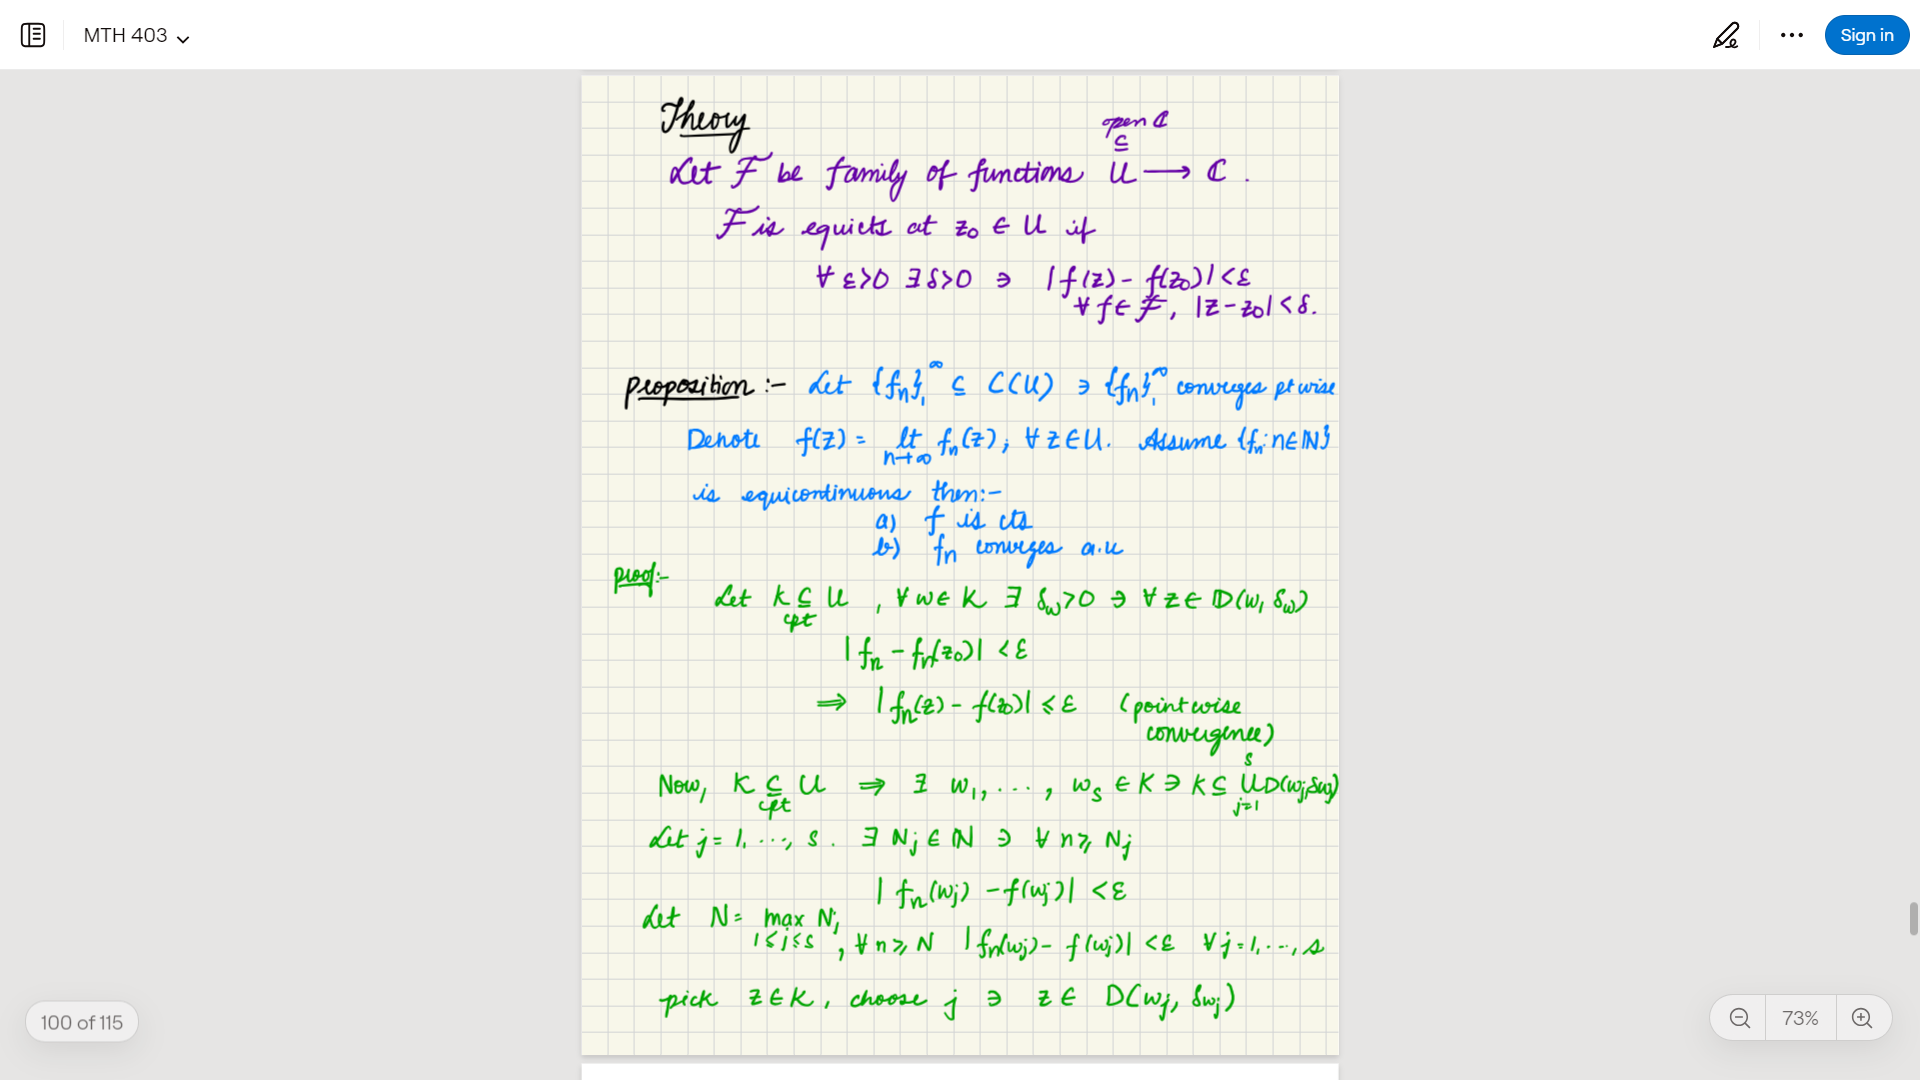 MTH 403
Sign in
Theory
open ℂ
⊆
Let ℱ be family of functions U ⟶ ℂ .
ℱ is equicts at z₀ ∈ U if
∀ ε>0 ∃ δ>0 ∋ |f(z) - f(z₀)| < ε
∀ f ∈ ℱ, |z - z₀| < δ.
Proposition :- Let {fₙ}₁^∞ ⊆ C(U) ∋ {fₙ}₁^∞ converges pt wise
Denote f(z) = lt_{n→∞} fₙ(z), ∀ z ∈ U. Assume {fₙ : n ∈ ℕ}
is equicontinuous then:-
a) f is cts
b) fₙ converges a.u
proof:-
Let K ⊆_{cpt} U , ∀ w ∈ K ∃ δ_w > 0 ∋ ∀ z ∈ D(w, δ_w)
|fₙ - fₙ(z₀)| < ε
⟹ |fₙ(z) - f(z₀)| ≤ ε (pointwise
convergence)
Now, K ⊆_{cpt} U ⟹ ∃ w₁, ..., w_s ∈ K ∋ K ⊆ ∪_{j=1}^{s} D(w_j, δ_{w_j})
Let j = 1, ..., s. ∃ N_j ∈ ℕ ∋ ∀ n ≥ N_j
|fₙ(w_j) - f(w_j)| < ε
Let N = max_{1≤j≤s} N_j , ∀ n ≥ N |fₙ(w_j) - f(w_j)| < ε ∀ j = 1, ..., s
pick z ∈ K, choose j ∋ z ∈ D(w_j, δ_{w_j})
100 of 115
73%